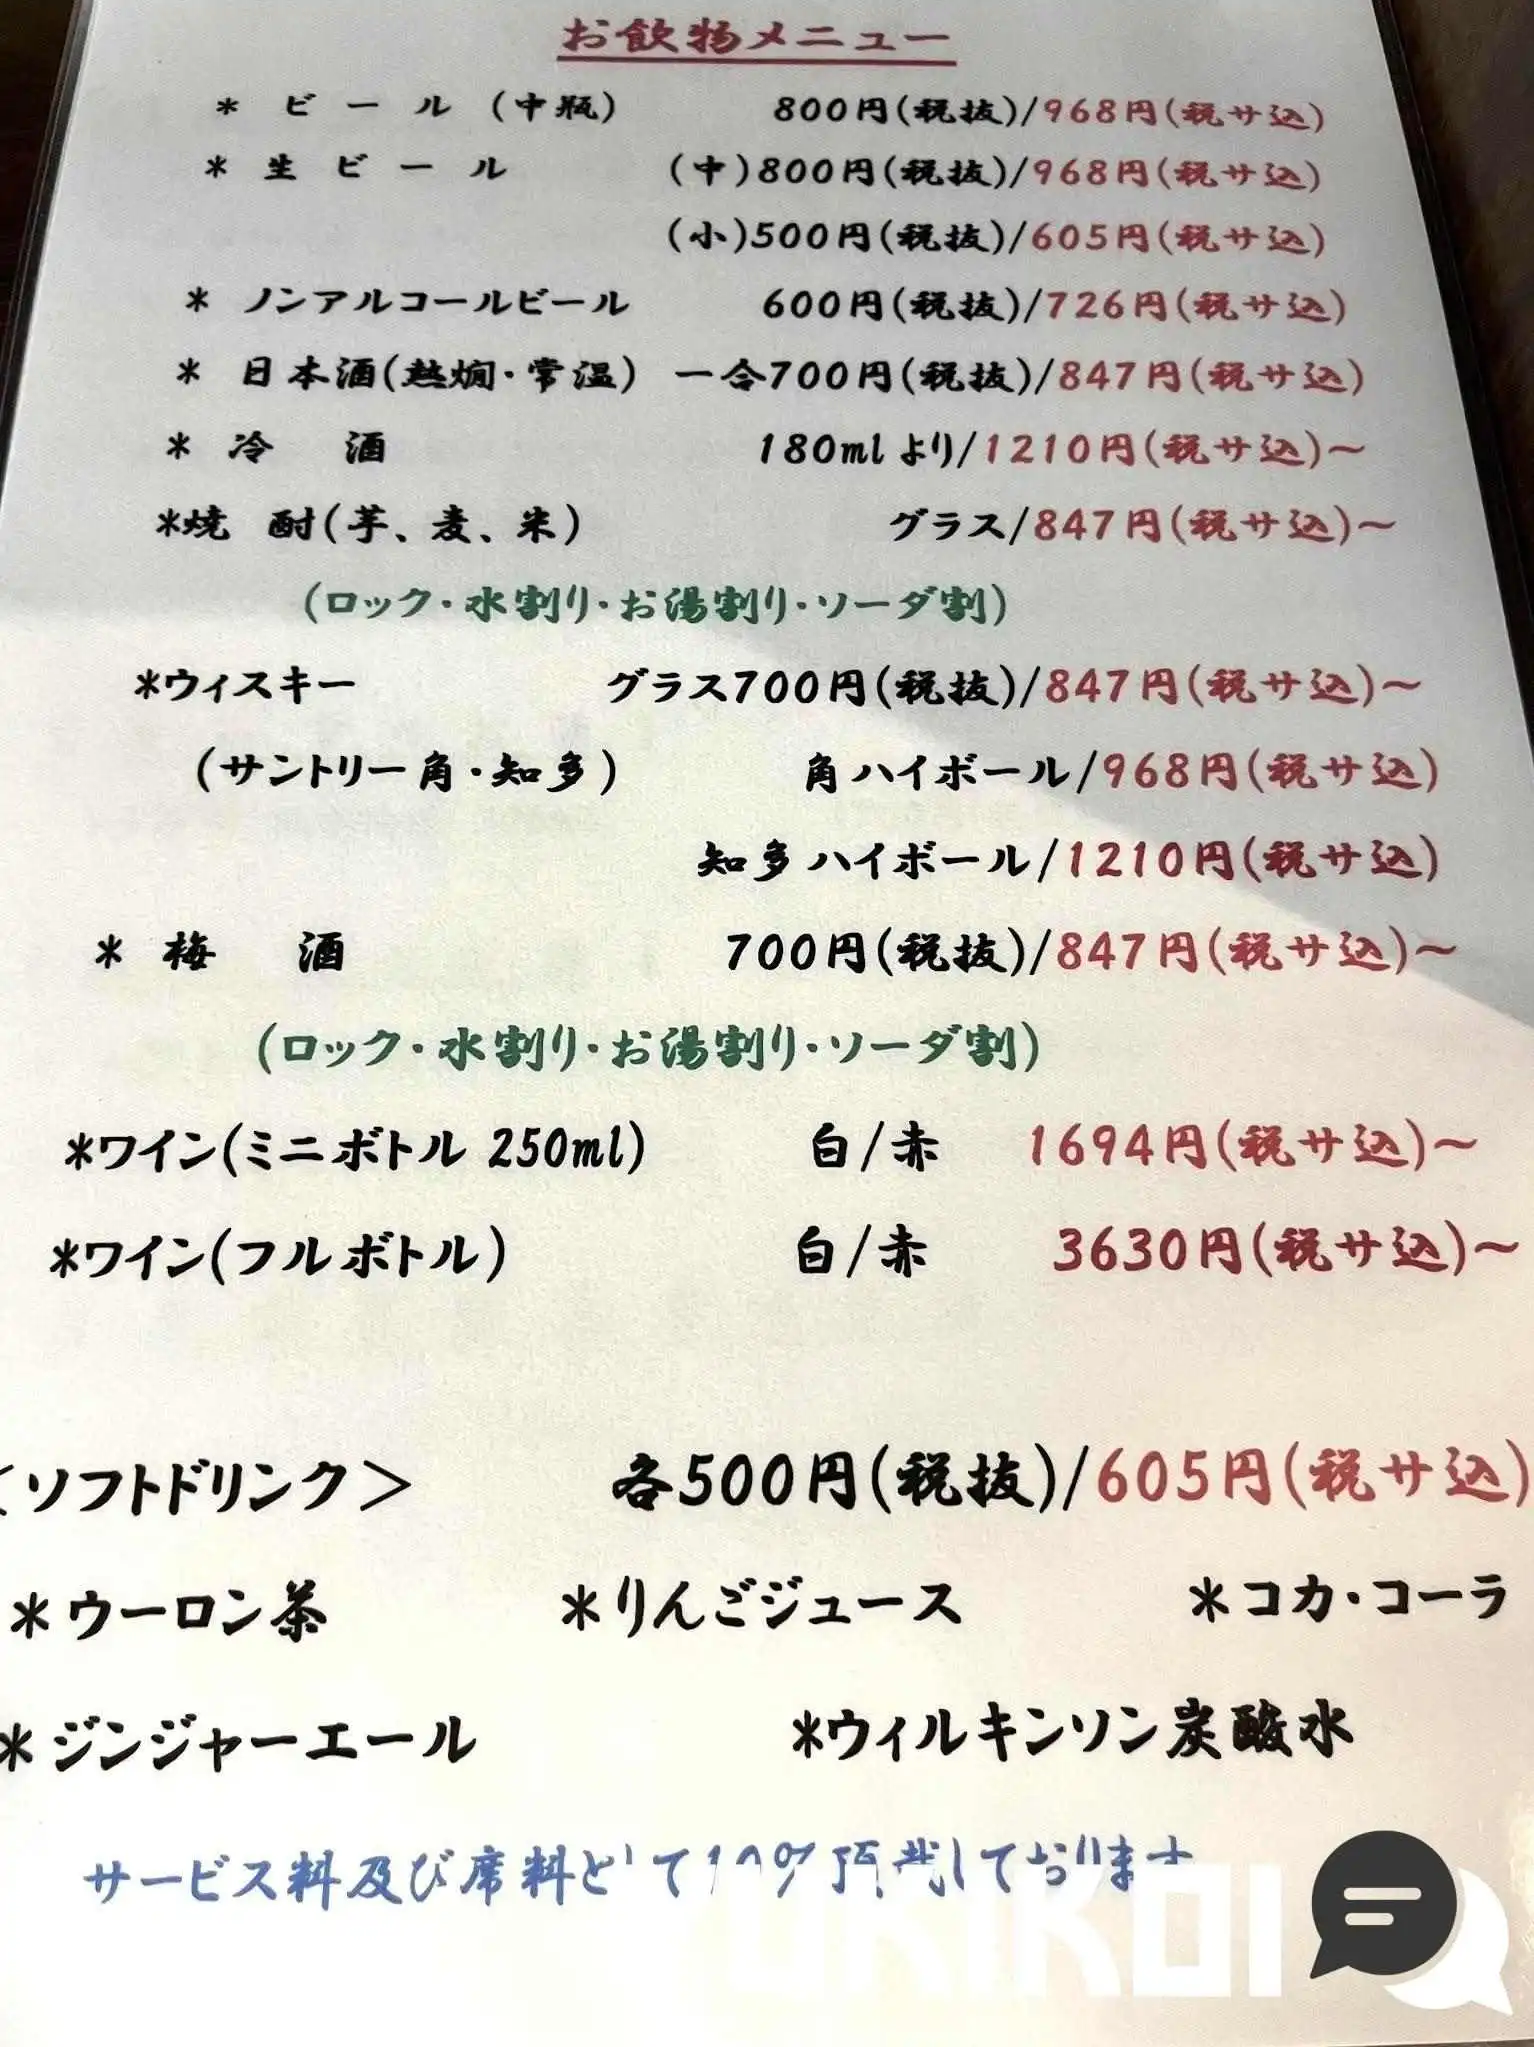 お飲物メニュー
* ビール (中瓶) 800円(税抜)/968円(税サ込)
* 生ビール (中)800円(税抜)/968円(税サ込)
(小)500円(税抜)/605円(税サ込)
* ノンアルコールビール 600円(税抜)/726円(税サ込)
* 日本酒(熱燗・常温) 一合700円(税抜)/847円(税サ込)
* 冷酒 180mlより/1210円(税サ込)~
*焼酎(芋、麦、米) グラス/847円(税サ込)~
(ロック・水割り・お湯割り・ソーダ割)
*ウィスキー グラス700円(税抜)/847円(税サ込)~
(サントリー角・知多) 角ハイボール/968円(税サ込)
知多ハイボール/1210円(税サ込)
* 梅酒 700円(税抜)/847円(税サ込)~
(ロック・水割り・お湯割り・ソーダ割)
*ワイン(ミニボトル 250ml) 白/赤 1694円(税サ込)~
*ワイン(フルボトル) 白/赤 3630円(税サ込)~
<ソフトドリンク> 各500円(税抜)/605円(税サ込)
*ウーロン茶 *りんごジュース *コカ・コーラ
*ジンジャーエール *ウィルキンソン炭酸水
サービス料及び席料として10%頂戴しております